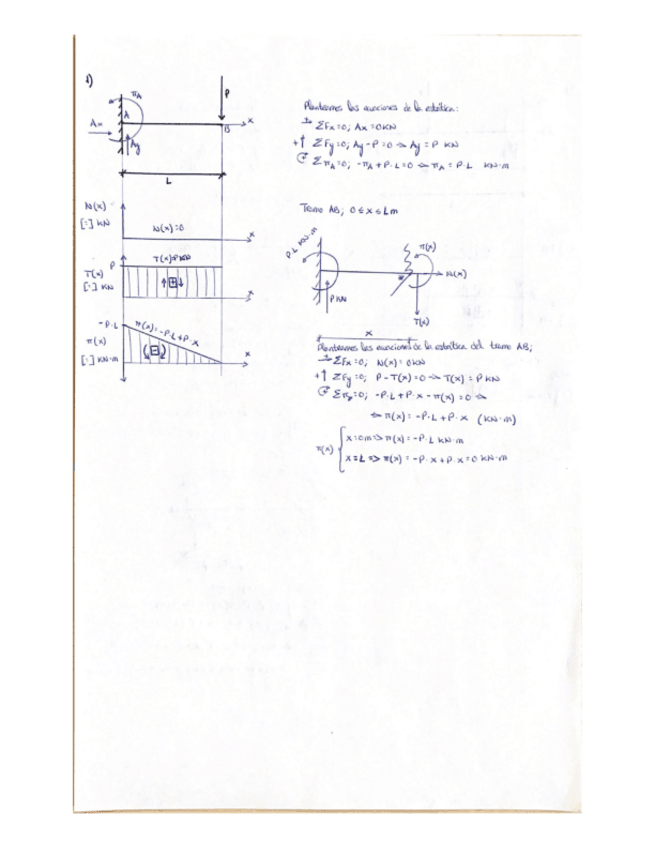 1)
πA
P
A
Ax
Ay
B
x
L
N(x)
[=] KN
N(x)=0
x
P
T(x)=P KN
T(x)
[=] KN
x
-P·L
π(x)=-P·L+P·x
π(x)
[=] KN·m
x
Planteamos las ecuaciones de la estática:
ΣFx=0; Ax=0KN
+↑ ΣFy=0; Ay-P=0 ⇔ Ay=P KN
ΣπA=0; -πA+P·L=0 ⇔ πA=P·L KN·m
Tramo AB; 0≤x≤Lm
P·L KN·m
P KN
π(x)
N(x)
T(x)
x
Planteamos las ecuaciones de la estática del tramo AB;
ΣFx=0; N(x)=0KN
+↑ ΣFy=0; P-T(x)=0 ⇔ T(x)=P KN
-P·L+P·x-π(x)=0 ⇔
⇔ π(x)=-P·L+P·x (KN·m)
π(x)
x=0m ⇒ π(x)=-P·L KN·m
x=L ⇒ π(x)=-P·x+P·x=0 KN·m